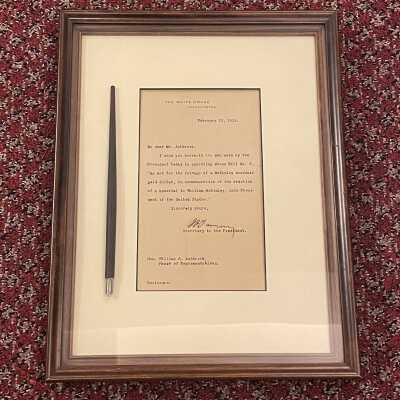 THE WHITE HOUSE
WASHINGTON
February 23, 1916.
My dear Mr. Ashbrook:
I send you herewith the pen used by the
President today in approving House Bill No. 2,
"An act for the coinage of a McKinley souvenir
gold dollar, in commemoration of the erection
of a memorial to William McKinley, late Presi-
dent of the United States."
Sincerely yours,
Secretary to the President.
Hon. William A. Ashbrook,
House of Representatives.
Enclosure